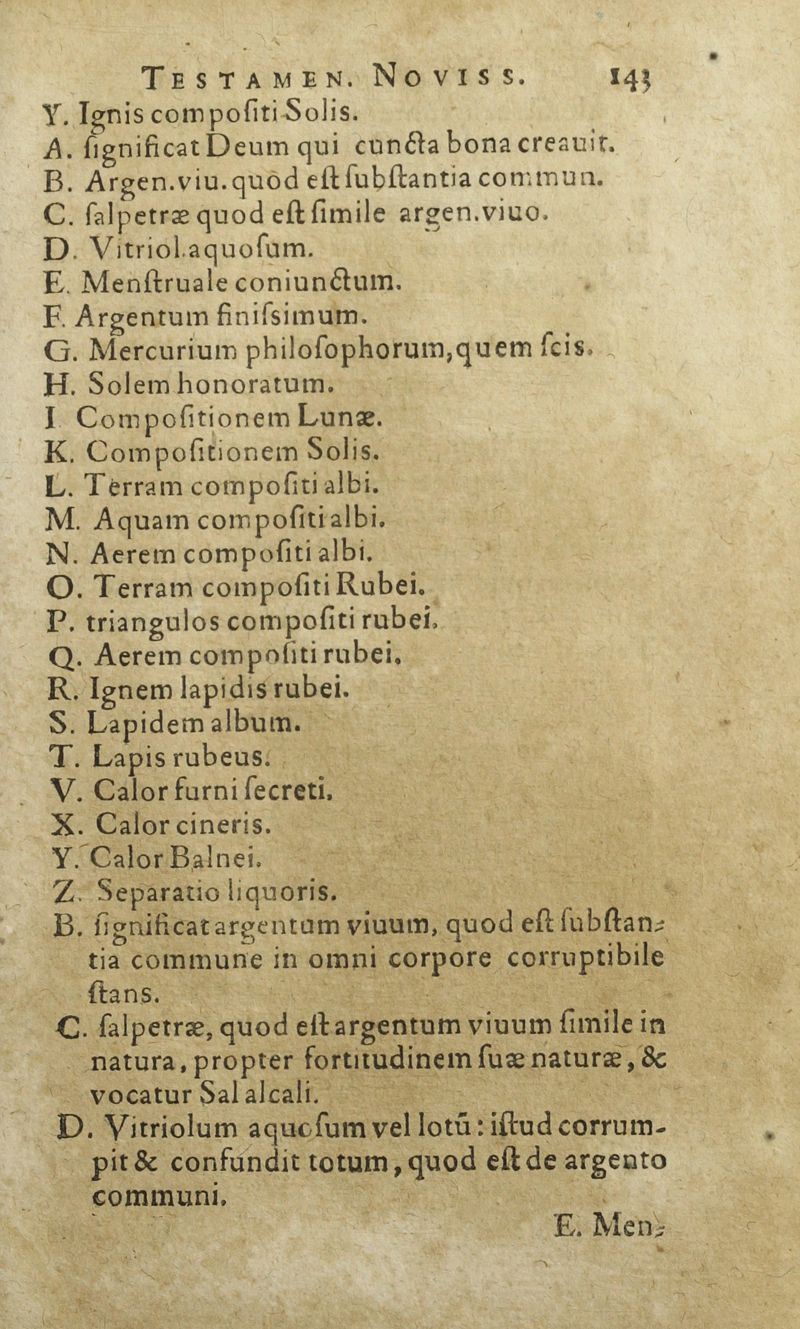 TESTAMEN. NOVISS. 143
Y. Ignis compoſiti Solis.
A. ſignificat Deum qui cuncta bona creauit.
B. Argen.viu.quòd eſt ſubſtantia commun.
C. ſalpetræ quod eſt ſimile argen.viuo.
D. Vitriol.aquoſum.
E. Menſtruale coniunctum.
F. Argentum finiſsimum.
G. Mercurium philoſophorum,quem ſcis.
H. Solem honoratum.
I Compoſitionem Lunæ.
K. Compoſitionem Solis.
L. Terram compoſiti albi.
M. Aquam compoſiti albi.
N. Aerem compoſiti albi.
O. Terram compoſiti Rubei.
P. triangulos compoſiti rubei.
Q. Aerem compoſiti rubei.
R. Ignem lapidis rubei.
S. Lapidem album.
T. Lapis rubeus.
V. Calor furni ſecreti.
X. Calor cineris.
Y. Calor Balnei.
Z. Separatio liquoris.
B. ſignificat argentum viuum, quod eſt ſubſtan-
tia commune in omni corpore corruptibile
ſtans.
C. ſalpetræ, quod eſt argentum viuum ſimile in
natura, propter fortitudinem ſuæ naturæ, &
vocatur Sal alcali.
D. Vitriolum aquoſum vel lotū: iſtud corrum-
pit & confundit totum, quod eſt de argento
communi.
E. Men-